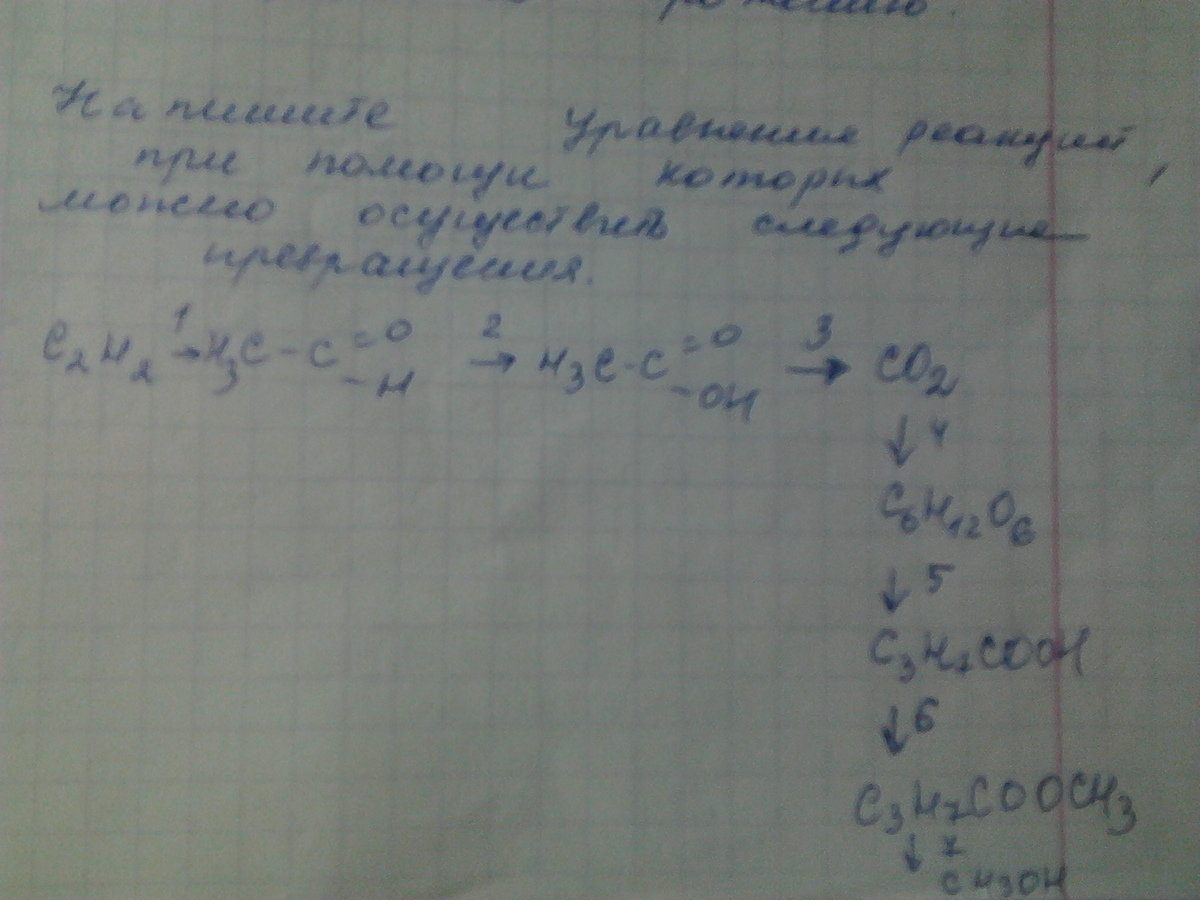 Напишите уравнения реакций,
при помощи которых
можно осуществить следующие
превращения.
C₂H₂ →¹ H₃C-C=O-H →² H₃C-C=O-OH →³ CO₂
↓ 4
C₆H₁₂O₆
↓ 5
C₃H₇COOH
↓ 6
C₃H₇COOCH₃
↓ 7
CH3OH